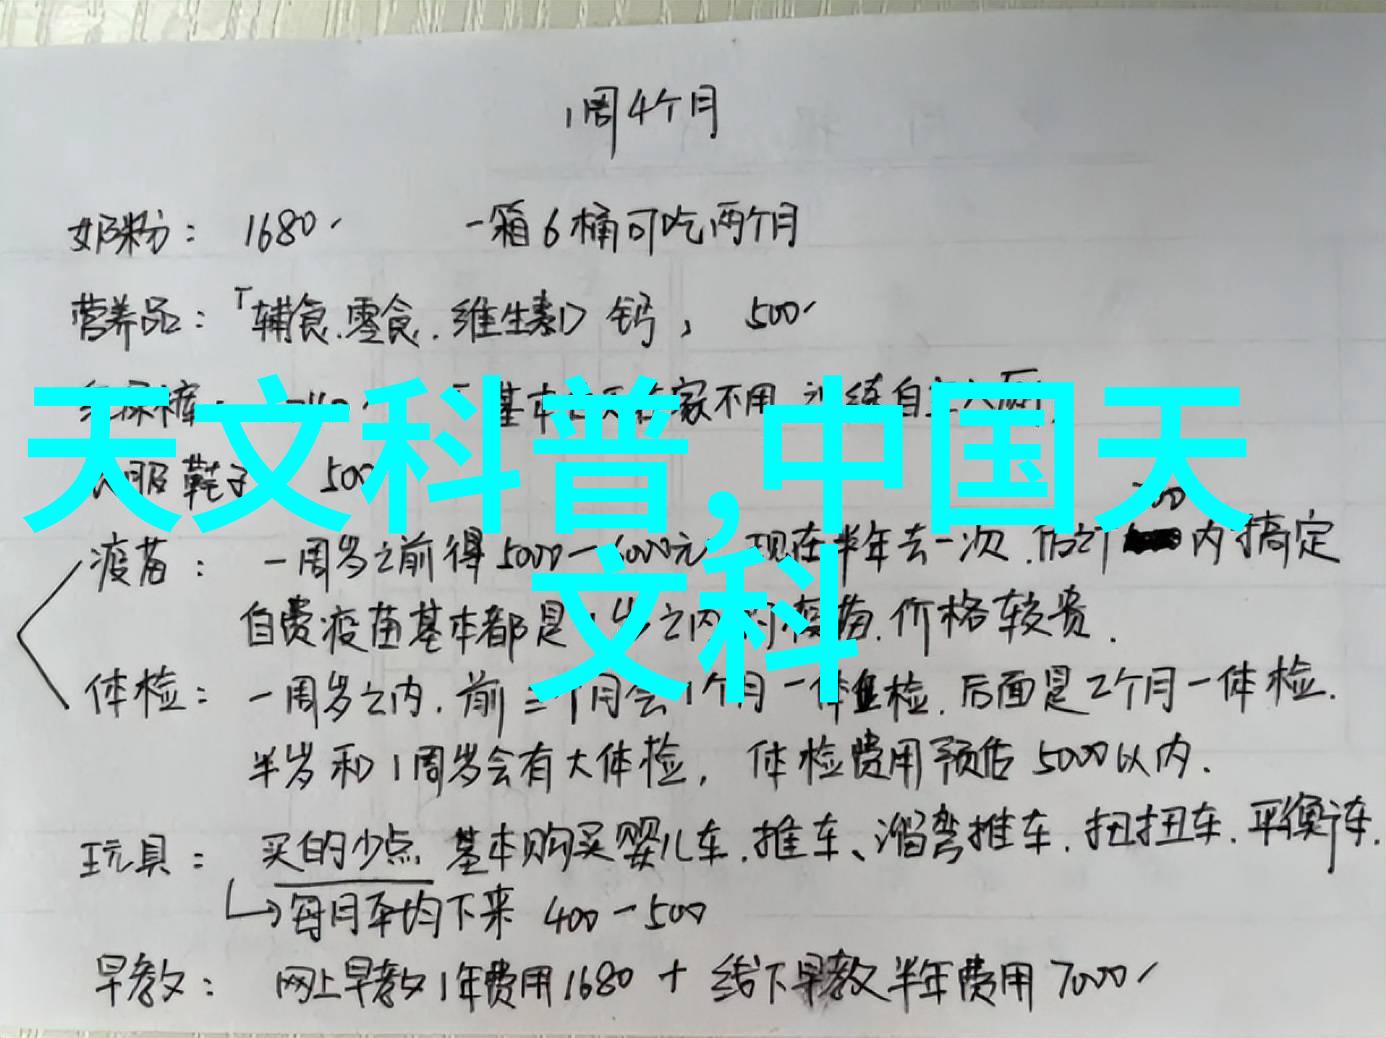 1周4个月
奶粉： 1680 一箱6桶可吃两个月
营养品：「辅食.零食.维生素D 钙， 500
裤： 基本 家不用 训练自主入厕.
服鞋子 500
天文科普,中国天
文科
疫苗： 一周岁之前得5000一6000元 现在半年去一次. 估计 700 内搞定
自费疫苗基本都是1岁之内的疫苗.价格较贵.
体检： 一周岁之内.前三个月会1个月一体检.后面是2个月一体检.
半岁和1周岁会有大体检， 体检费用预估5000以内.
玩具： 买的少点 基本购买婴儿车.推车、溜弯推车.扭扭车.平衡车.
每月平均下来 400一500
早教： 网上早教1年费用1680 + 线下早教半年费用7000